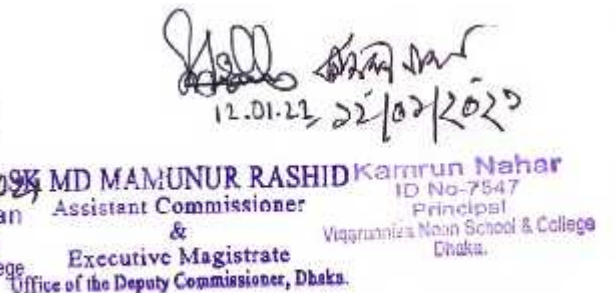 12.01.21
SK MD MAMUNUR RASHID
Assistant Commissioner
&
Executive Magistrate
Office of the Deputy Commissioner, Dhaka.
Kamrun Nahar
ID No-7547
Principal
Viqarunnisa Noon School & College
Dhaka.